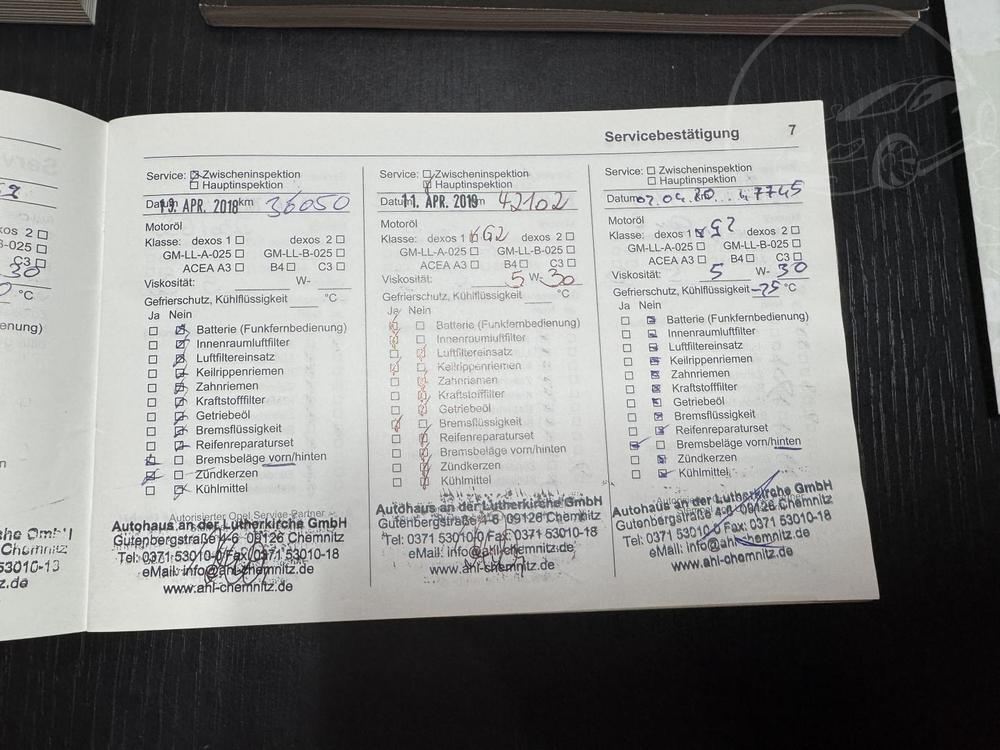 Servicebestätigung 7
Service: Zwischeninspektion
Hauptinspektion
Datum 13. APR. 2018 km 36050
Motoröl
Klasse: dexos 1 dexos 2
GM-LL-A-025 GM-LL-B-025
ACEA A3 B4 C3
Viskosität: W-
Gefrierschutz, Kühlflüssigkeit °C
Ja Nein
Batterie (Funkfernbedienung)
Innenraumluftfilter
Luftfiltereinsatz
Keilrippenriemen
Zahnriemen
Kraftstofffilter
Getriebeöl
Bremsflüssigkeit
Reifenreparaturset
Bremsbeläge vorn/hinten
Zündkerzen
Kühlmittel
Autorisierter Opel Service-Partner
Autohaus an der Lutherkirche GmbH
Gutenbergstraße 4-6 09126 Chemnitz
Tel: 0371 53010-0 Fax: 0371 53010-18
eMail: info@ahl-chemnitz.de
www.ahl-chemnitz.de
Service: Zwischeninspektion
Hauptinspektion
Datum 11. APR. 2019 km 42102
Motoröl
Klasse: dexos 1 G2 dexos 2
GM-LL-A-025 GM-LL-B-025
ACEA A3 B4 C3
Viskosität: 5 W- 30
Gefrierschutz, Kühlflüssigkeit °C
Ja Nein
Batterie (Funkfernbedienung)
Innenraumluftfilter
Luftfiltereinsatz
Keilrippenriemen
Zahnriemen
Kraftstofffilter
Getriebeöl
Bremsflüssigkeit
Reifenreparaturset
Bremsbeläge vorn/hinten
Zündkerzen
Kühlmittel
Autohaus an der Lutherkirche GmbH
Gutenbergstraße 4-6 09126 Chemnitz
Tel: 0371 53010-0 Fax: 0371 53010-18
eMail: info@ahl-chemnitz.de
www.ahl-chemnitz.de
Service: Zwischeninspektion
Hauptinspektion
Datum 02.04.20 47745
Motoröl
Klasse: dexos 1 G2 dexos 2
GM-LL-A-025 GM-LL-B-025
ACEA A3 B4 C3
Viskosität: 5 W- 30
Gefrierschutz, Kühlflüssigkeit -25 °C
Ja Nein
Batterie (Funkfernbedienung)
Innenraumluftfilter
Luftfiltereinsatz
Keilrippenriemen
Zahnriemen
Kraftstofffilter
Getriebeöl
Bremsflüssigkeit
Reifenreparaturset
Bremsbeläge vorn/hinten
Zündkerzen
Kühlmittel
Autohaus an der Lutherkirche GmbH
Gutenbergstraße 4-6 09126 Chemnitz
Tel: 0371 53010-0 Fax: 0371 53010-18
eMail: info@ahl-chemnitz.de
www.ahl-chemnitz.de